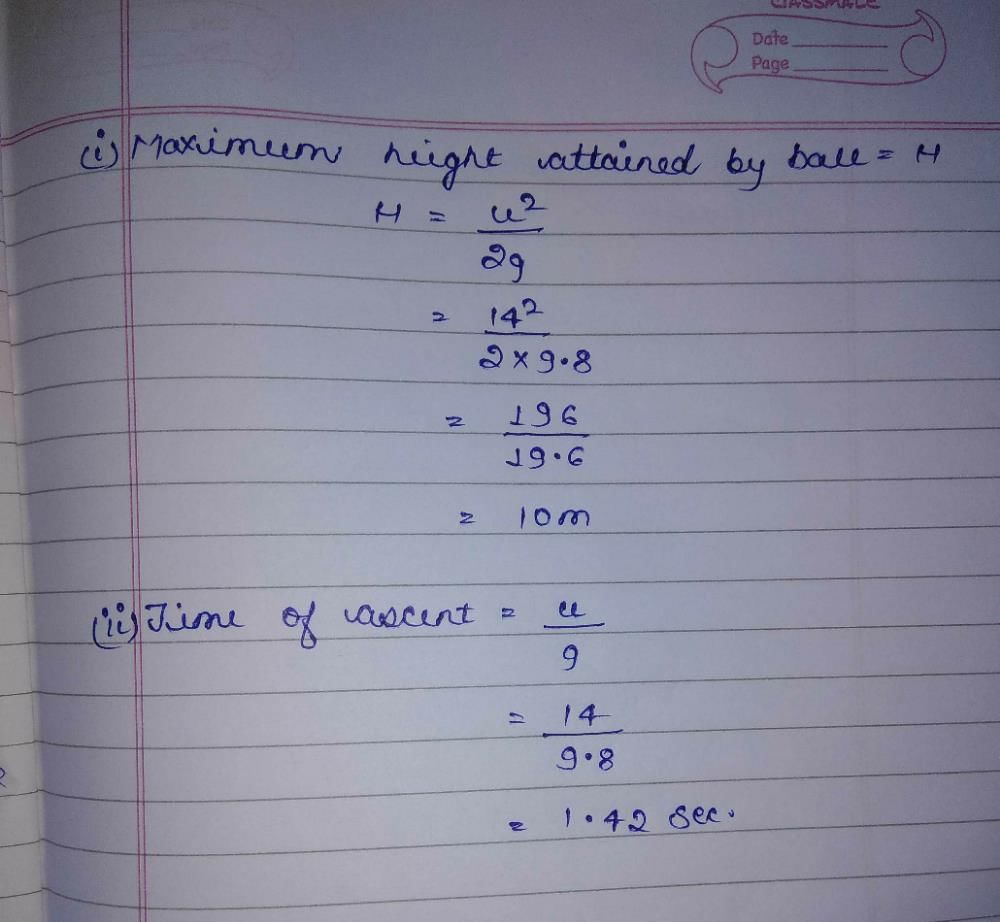 CLASSMATE
Date
Page
(i) Maximum height attained by ball = H
H = u²
2g
= 14²
2 × 9.8
= 196
19.6
= 10m
(ii) Time of ascent = u
g
= 14
9.8
= 1.42 sec.